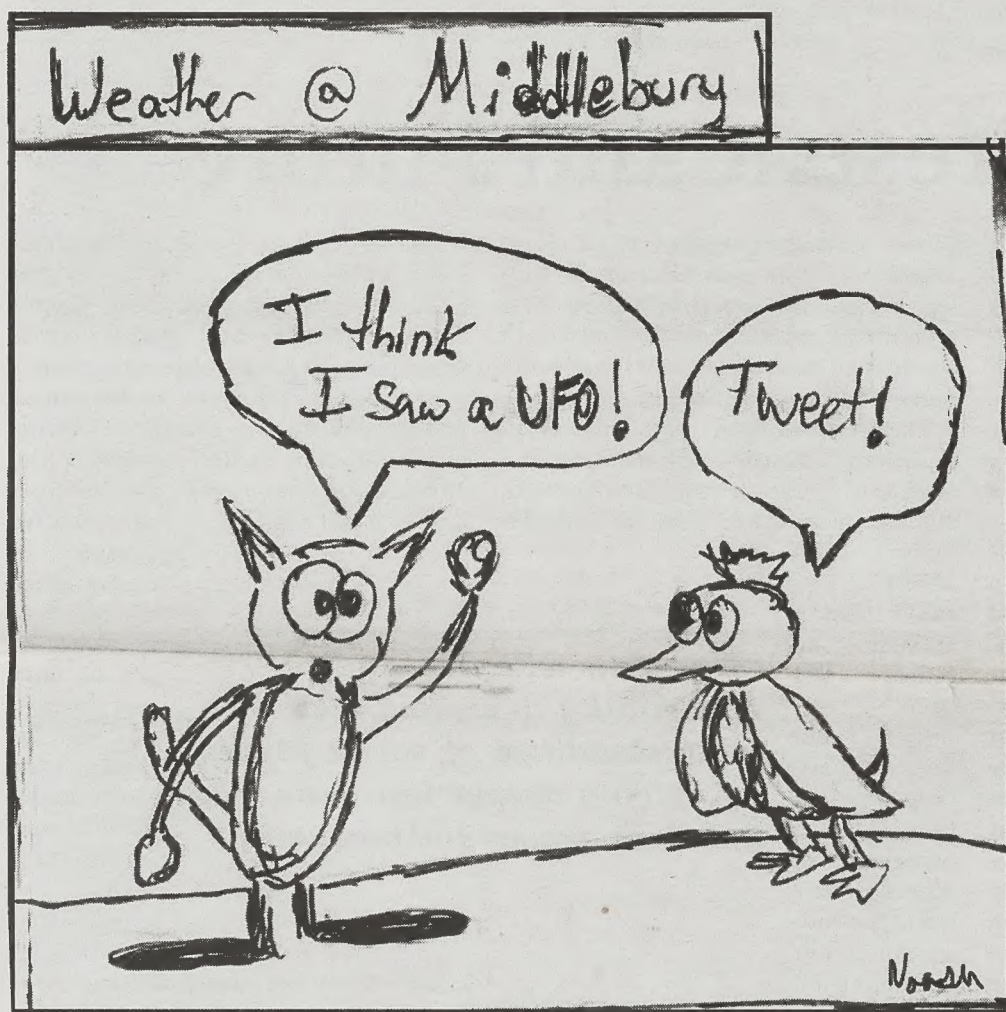 Weather @ Middlebury
I think
I saw a UFO!
Tweet!